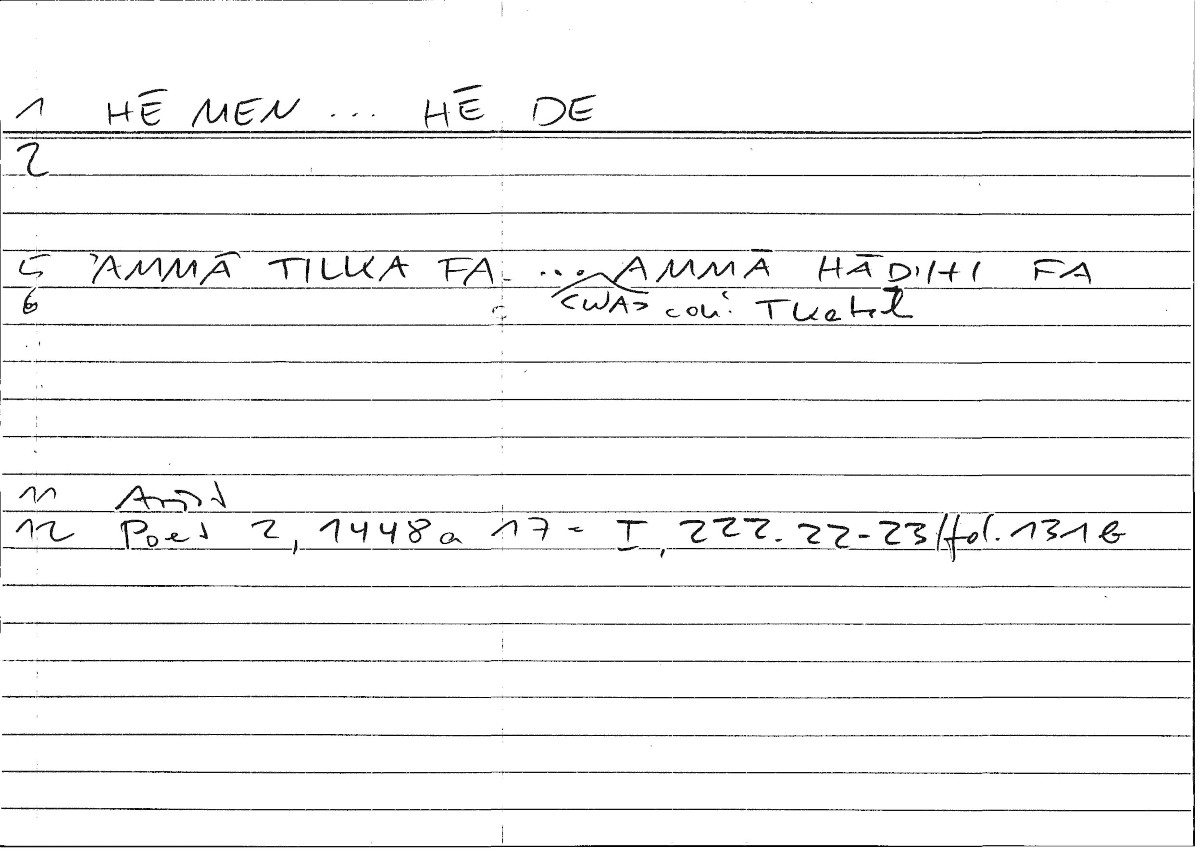 1 HĒ MEN ... HĒ DE
2
5 ʾAMMĀ TILKA FA ... AMMĀ HĀḎIHI FA
6 <WA> coni. Tkatsch
11 Arist
12 Poet 2, 1448a 17 = I, 222.22-23/fol. 131b